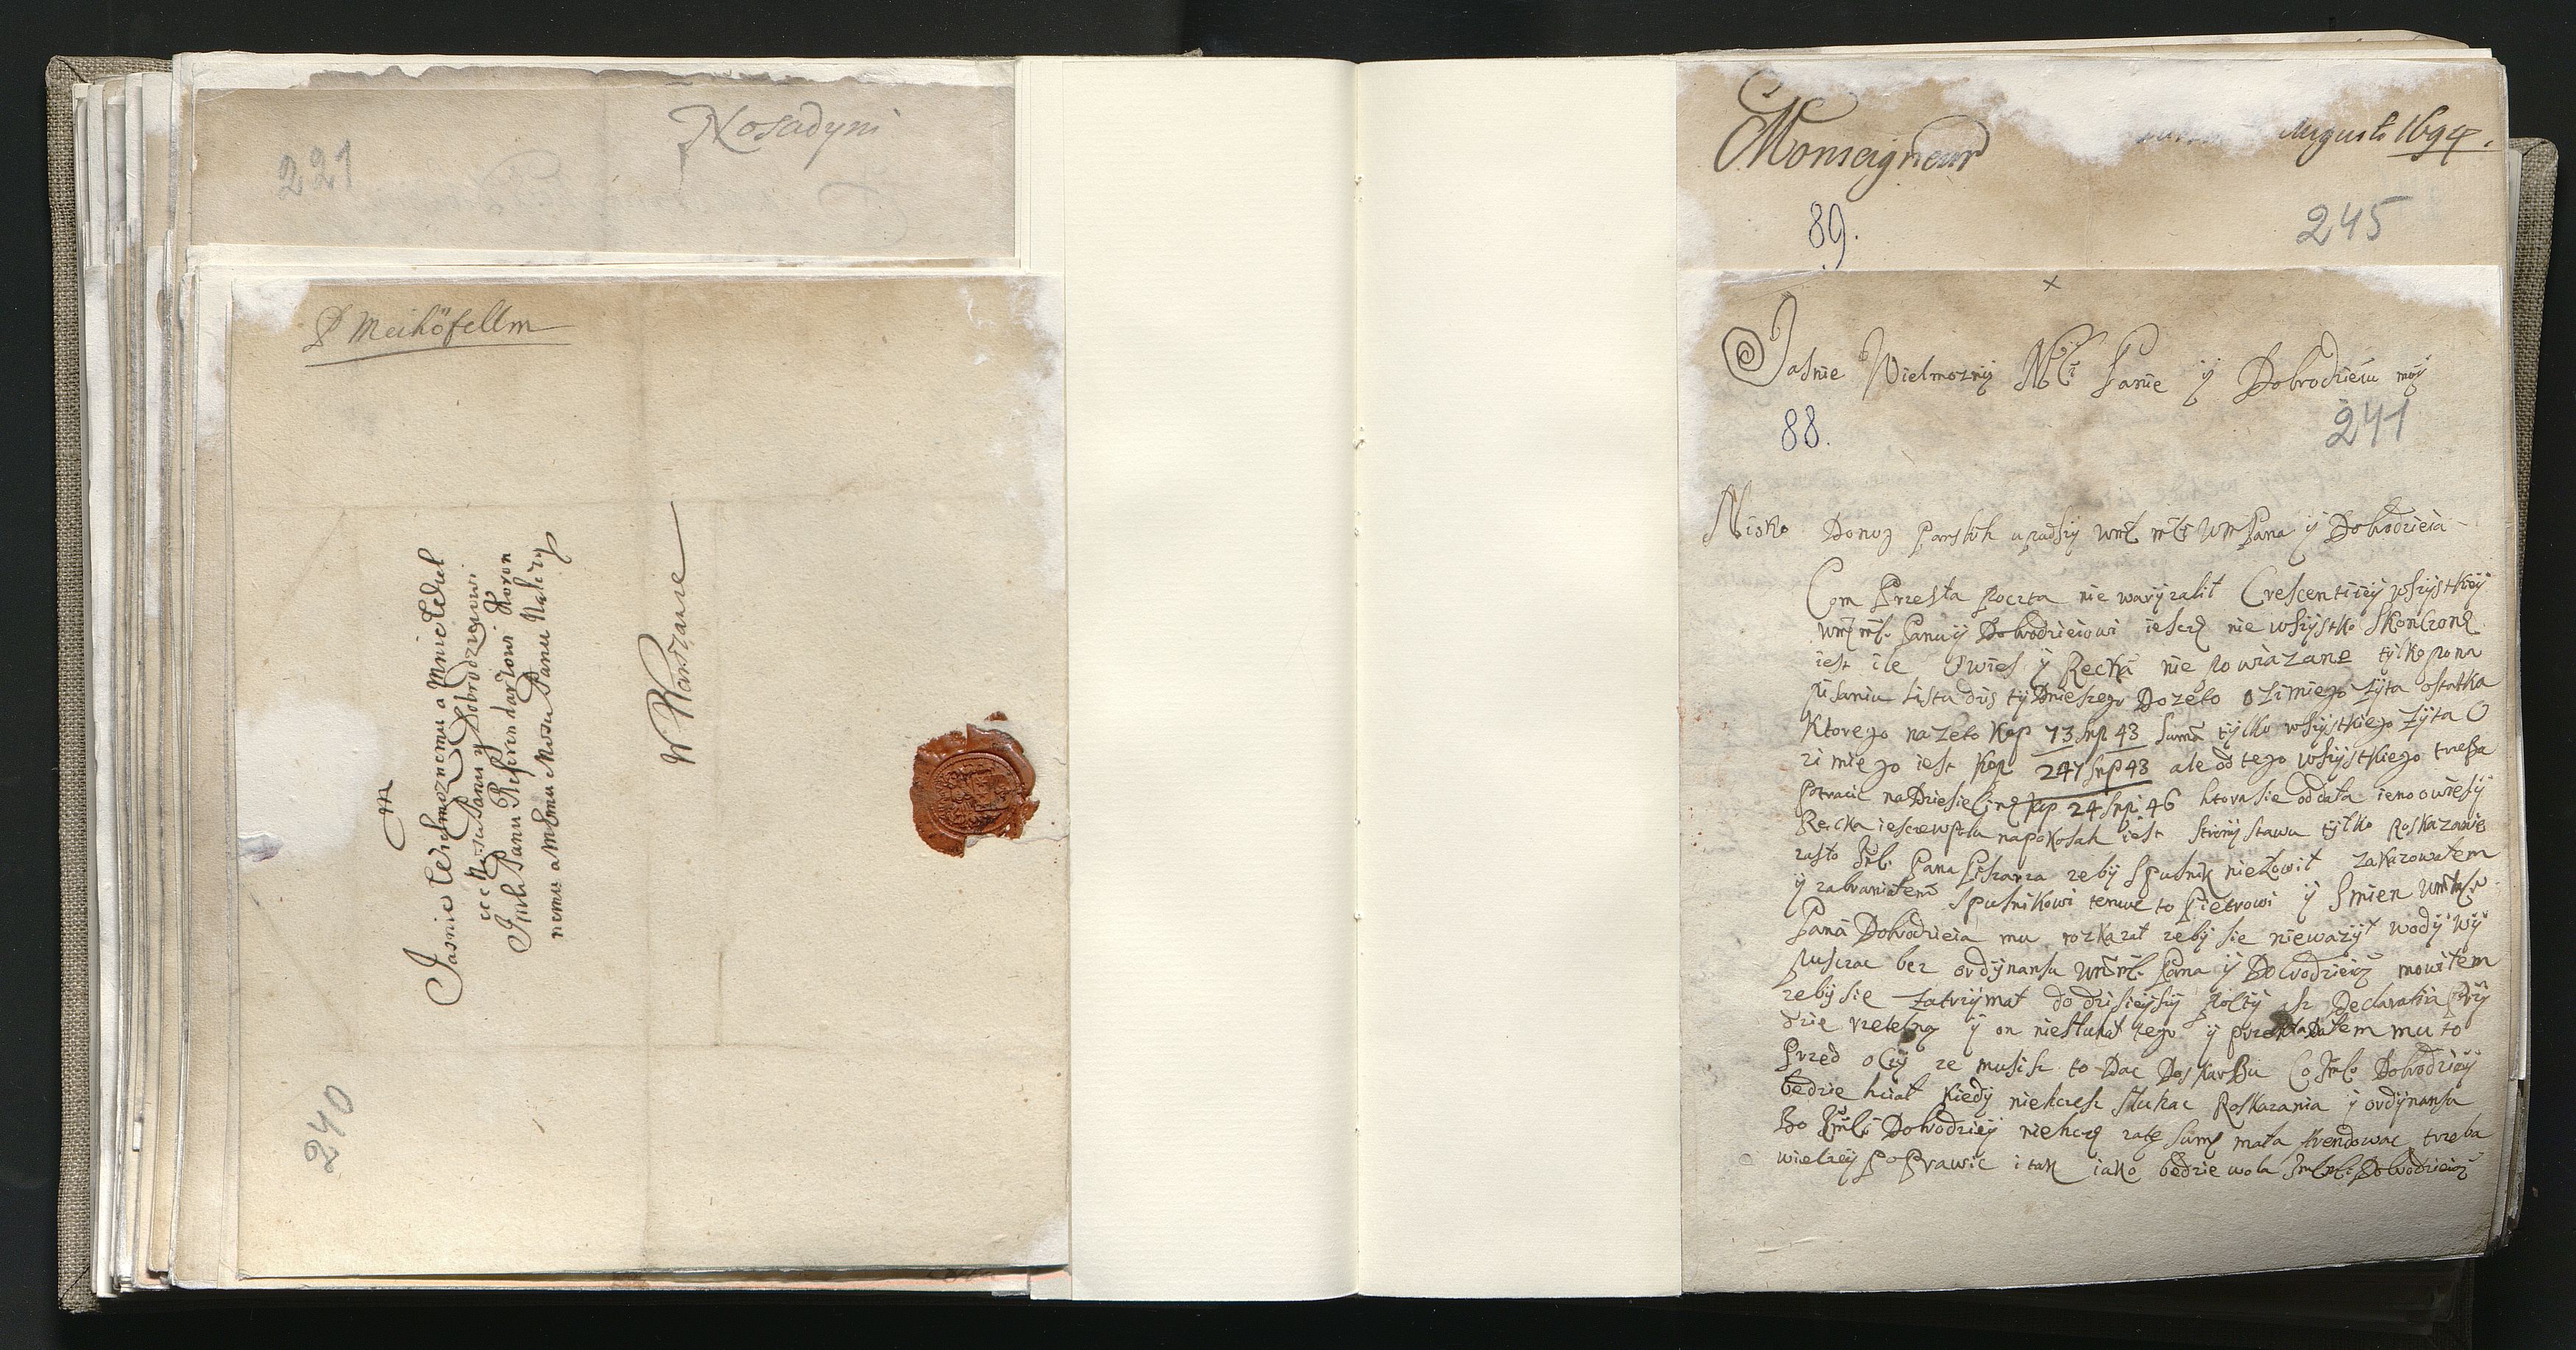 Nosadyni
221
P Meihöfellm
M
Jasnie Wielmoznemu a Mnie Wiel
Panu y Dobrodzieiowi
Panu Referendarzowi Koron
nemu a memu Mosu Panu Należy
W Warszawie
240
Monseigneur
Augusti 1694.
89.
245
x
Jasnie Wielmozny Mci Panie y Dobrodzieiu moy
88.
241
Nisko Donog Panskih upadszy Pana ÿ Dobrodzieia
Com Przeszła poczta nie warÿzalit Crescentieÿ wszÿstkieÿ
Panu ÿ Dobrodzieiowi iescze nie wszÿstko skonczone
iest ile Owies ÿ Recka nie powiazane tÿlko pona
pisaniu listu dis tÿdnieszego Dozeto ozimiego Zÿta ostatka
Ktorego nazeto Kop 73 snp 43 suma tÿlko wszÿstkiego Zÿta O
zimiego iest Kop 247 snp 43 ale od tego wszÿstkiego trzeba
Potracic na Dziesiecine Kop 24 snp: 46 ktora sie oddała ieno owies ÿ
Recka iescze napokosah iest stronÿ stawu tÿlko Roskazanie
zasło Pana Pisarza zebÿ Spusnik niełowił zakazowałem
ÿ zabraniałem Spusnikowi temu to Pietrowi ÿ Imien
Pana Dobrodzieia mu rozkazał zebÿ sie nieważÿł wodÿ wÿ
puszcac bez ordÿnansu Pana ÿ Dobrodzieia mowiłem
zebÿ sie zatrzÿmał do dzisieÿszÿ poltÿ Declaratia Prÿ
dzie rzetelna ÿ on niesłuhał tego ÿ przekładałem mu to
Przed oczÿ ze musisz to Dac Doskarbu Co Dobrodzieÿ
bedzie hciał Kiedÿ niehcesz słuhac Roskazania ÿ ordÿnansu
Bo Dobrodzieÿ niehce zate sume mała Arendowac trzeba
wieczeÿ Poprawic i tak iako bedzie wola Dobrodzieia